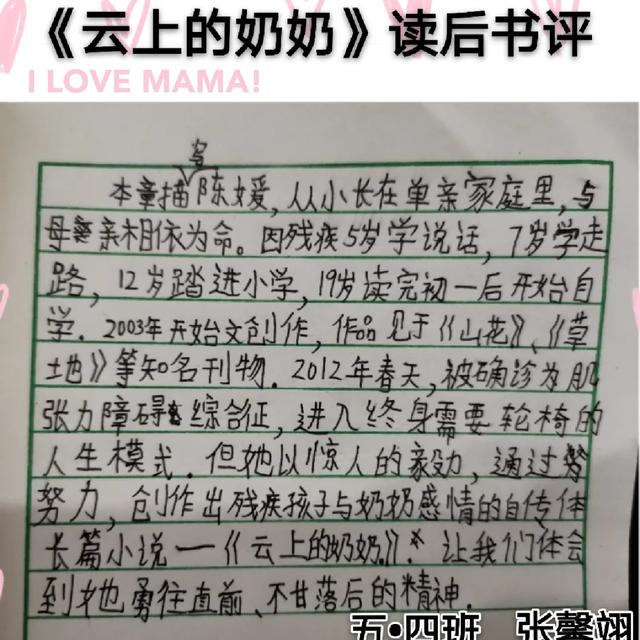 《云上的奶奶》读后书评
I LOVE MAMA!
写
本章描陈媛,从小长在单亲家庭里,与
母亲相依为命。因残疾5岁学说话,7岁学走
路,12岁踏进小学,19岁读完初一后开始自
学.2003年开始文创作,作品见于《山花》、《草
地》等知名刊物.2012年春天,被确诊为肌
张力障碍综合征,进入终身需要轮椅的
人生模式.但她以惊人的毅力,通过
努力,创作出残疾孩子与奶奶感情的自传体
长篇小说一《云上的奶奶》.让我们体会
到她勇往直前、不甘落后的精神.
五•四班 张馨翊